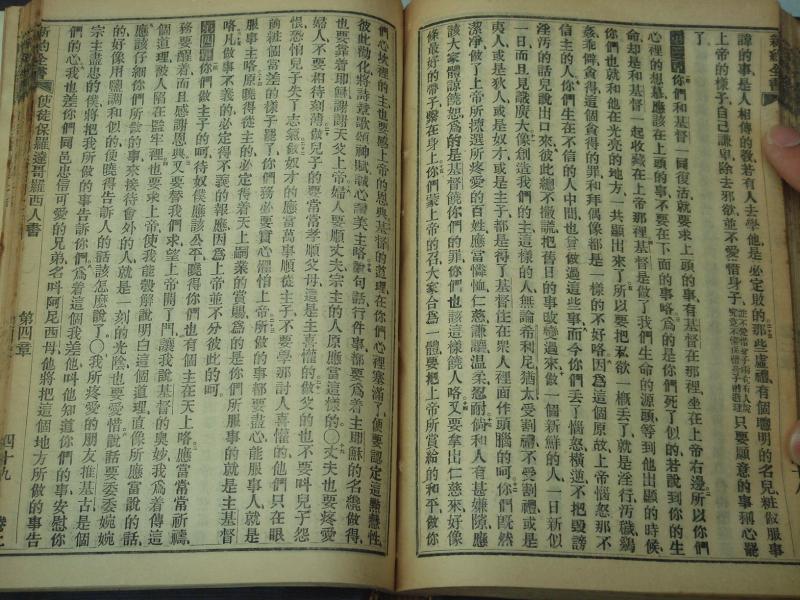 新約全書
諱的事是人相傳的教若有人去學他是必定敗的那些虛禮有個聰明的名兒粧做服事
上帝的樣子自己謙卑除去邪欲並不愛惜身子只要願意的事稱心罷
了
第三章你們和基督一同復活就要求上頭的事有基督在那裡坐在上帝右邊所以你們
心裡的想慕應該在上頭的事不要在下面的事略為的是你們死了似的若說到你的生
命却是和基督一起收藏在上帝那裡基督是做了我們生命的源頭等到他出顯的時候
你們也就和他在光亮的地方一共顯出來了所以要把私欲一概丟了就是淫行汚穢
姦乖僻貪得這個貪得的罪和拜偶像都是一樣的不好略因為這個原故上帝惱怒那不
信主的人你們生在不信的人中間也曾做過這些事而今你們丟了惱怒橫逆不把毀謗
淫汚的話兒說出口來彼此總不撒謊把舊日的事改變過來做一個新鮮的人一日新似
一日而且見識廣大像創造我們的主這樣的人無論希利尼猶太受割禮不受割禮或是
夷人或是狄人或是奴才或是主子都是得了基督住在衆人裡面作頭腦的呵你們既然
潔淨做了上帝所揀選所疼愛的百姓應當憐恤仁慈謙讓溫柔忍耐倘和人有甚嫌隙應
該大家體諒饒恕為的是基督饒你們的罪你們也該這樣饒人略又要拿出仁慈來好像
條最好的帶子繫在身上你們蒙上帝的召大家合為一體要把上帝所賞給的和平做你
們心坎裡的主也要感上帝的恩典基督的道理在你們心裡塞滿了便要認定這點慧性
彼此勸化將詩章歌頌神賦誠心讚美主略說句話行件事都要為着主耶穌的名纔做得
也要靠着耶穌謝謝天父上帝婦人要順丈夫宗主的人原應當這樣的〇丈夫也要疼愛
婦人不要相待刻薄做兒子的要常常孝順父母這是主喜懽的做父的也不要叫兒子怨
恨恐怕兒子失了志氣做奴才的應當萬事順從主子不要學那討人喜懽的他們只在眼
前粧個當差的樣子罷了你們務必要實心懼怕上帝凡你們所做的事都要盡心能服事人就是
服事主略原曉得從主的必定得着天上嗣業的賞賜為的是你們所服事的就是主基督
略凡做事不義的必定得不義的報應因為上帝並不分彼此的呵
第四章你們做主子的呵待奴僕應該公平曉得你們也有個主在天上略應當常常祈禱
務要醒着而且感謝恩典又要替我們求望上帝開了門讓我說基督的奧妙我為着傳這
個道理被人陷在監牢裡也要求上帝使我能彀解說明白這個道理直像所應當說的話
應該仔細你們所做的事來接待會外的人就是一刻的光陰也要愛惜說話要委委婉婉
的好像用鹽調和似的便曉得告訴人的話該怎麼說了〇我所疼愛的朋友推基古是個
宗主盡忠的僕將把我所做的事告訴你們為着這個我差他叫他知道你們的事安慰你
們的心我也差你們同邑忠信可愛的兄弟名叫阿尼西母他將把這個地方所做的事告
新約全書
使徒保羅達哥羅西人書
第四章
四十九